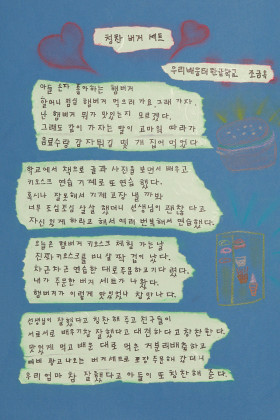 칭찬 버거 세트
우리배움터한글학교 조금옥
아들 손자 좋아하는 햄버거
할머니 점심 햄버거 먹으러 가요. 그래 가자.
난 햄버거 뭐가 맛있는지 모르겠다.
그래도 같이 가자는 말이 고마워 따라가
음료수랑 감자튀김 몇 개 집어 먹었다
학교에서 책으로 글과 사진을 보면서 배우고
키오스크 연습 기계로 또 연습 했다.
혹시나 잘못해서 기계 고장 낼까봐
너무 조심조심 살살 했더니 선생님이 괜찮다고
자신 있게 하라고 해서 여러 번 반복해서 연습했다.
오늘은 햄버거 키오스크 체험 가는 날
진짜 키오스크를 만나 살짝 겁이 났다.
차근차근 연습한 대로 주문하고 기다렸다.
내가 주문한 버거 세트가 나왔다.
햄버거가 이렇게 맛있었나 참 맛나다.
선생님이 잘했다고 칭찬해 주고 친구들이
서로서로 배우기 참 잘했다고 대견하다고 칭찬한다.
맛있게 먹고 배운 대로 먹은 거 분리배출하고
예삐 팔고 나오는 버거 세트도 포장 주문해 갔더니
우리 엄마 참 잘했다고 아들이 또 칭찬해 준다.